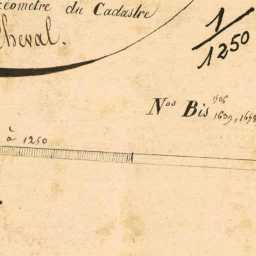 éometre du Cadastre
Cheval.
1/1250
Nos Bis
à 1250